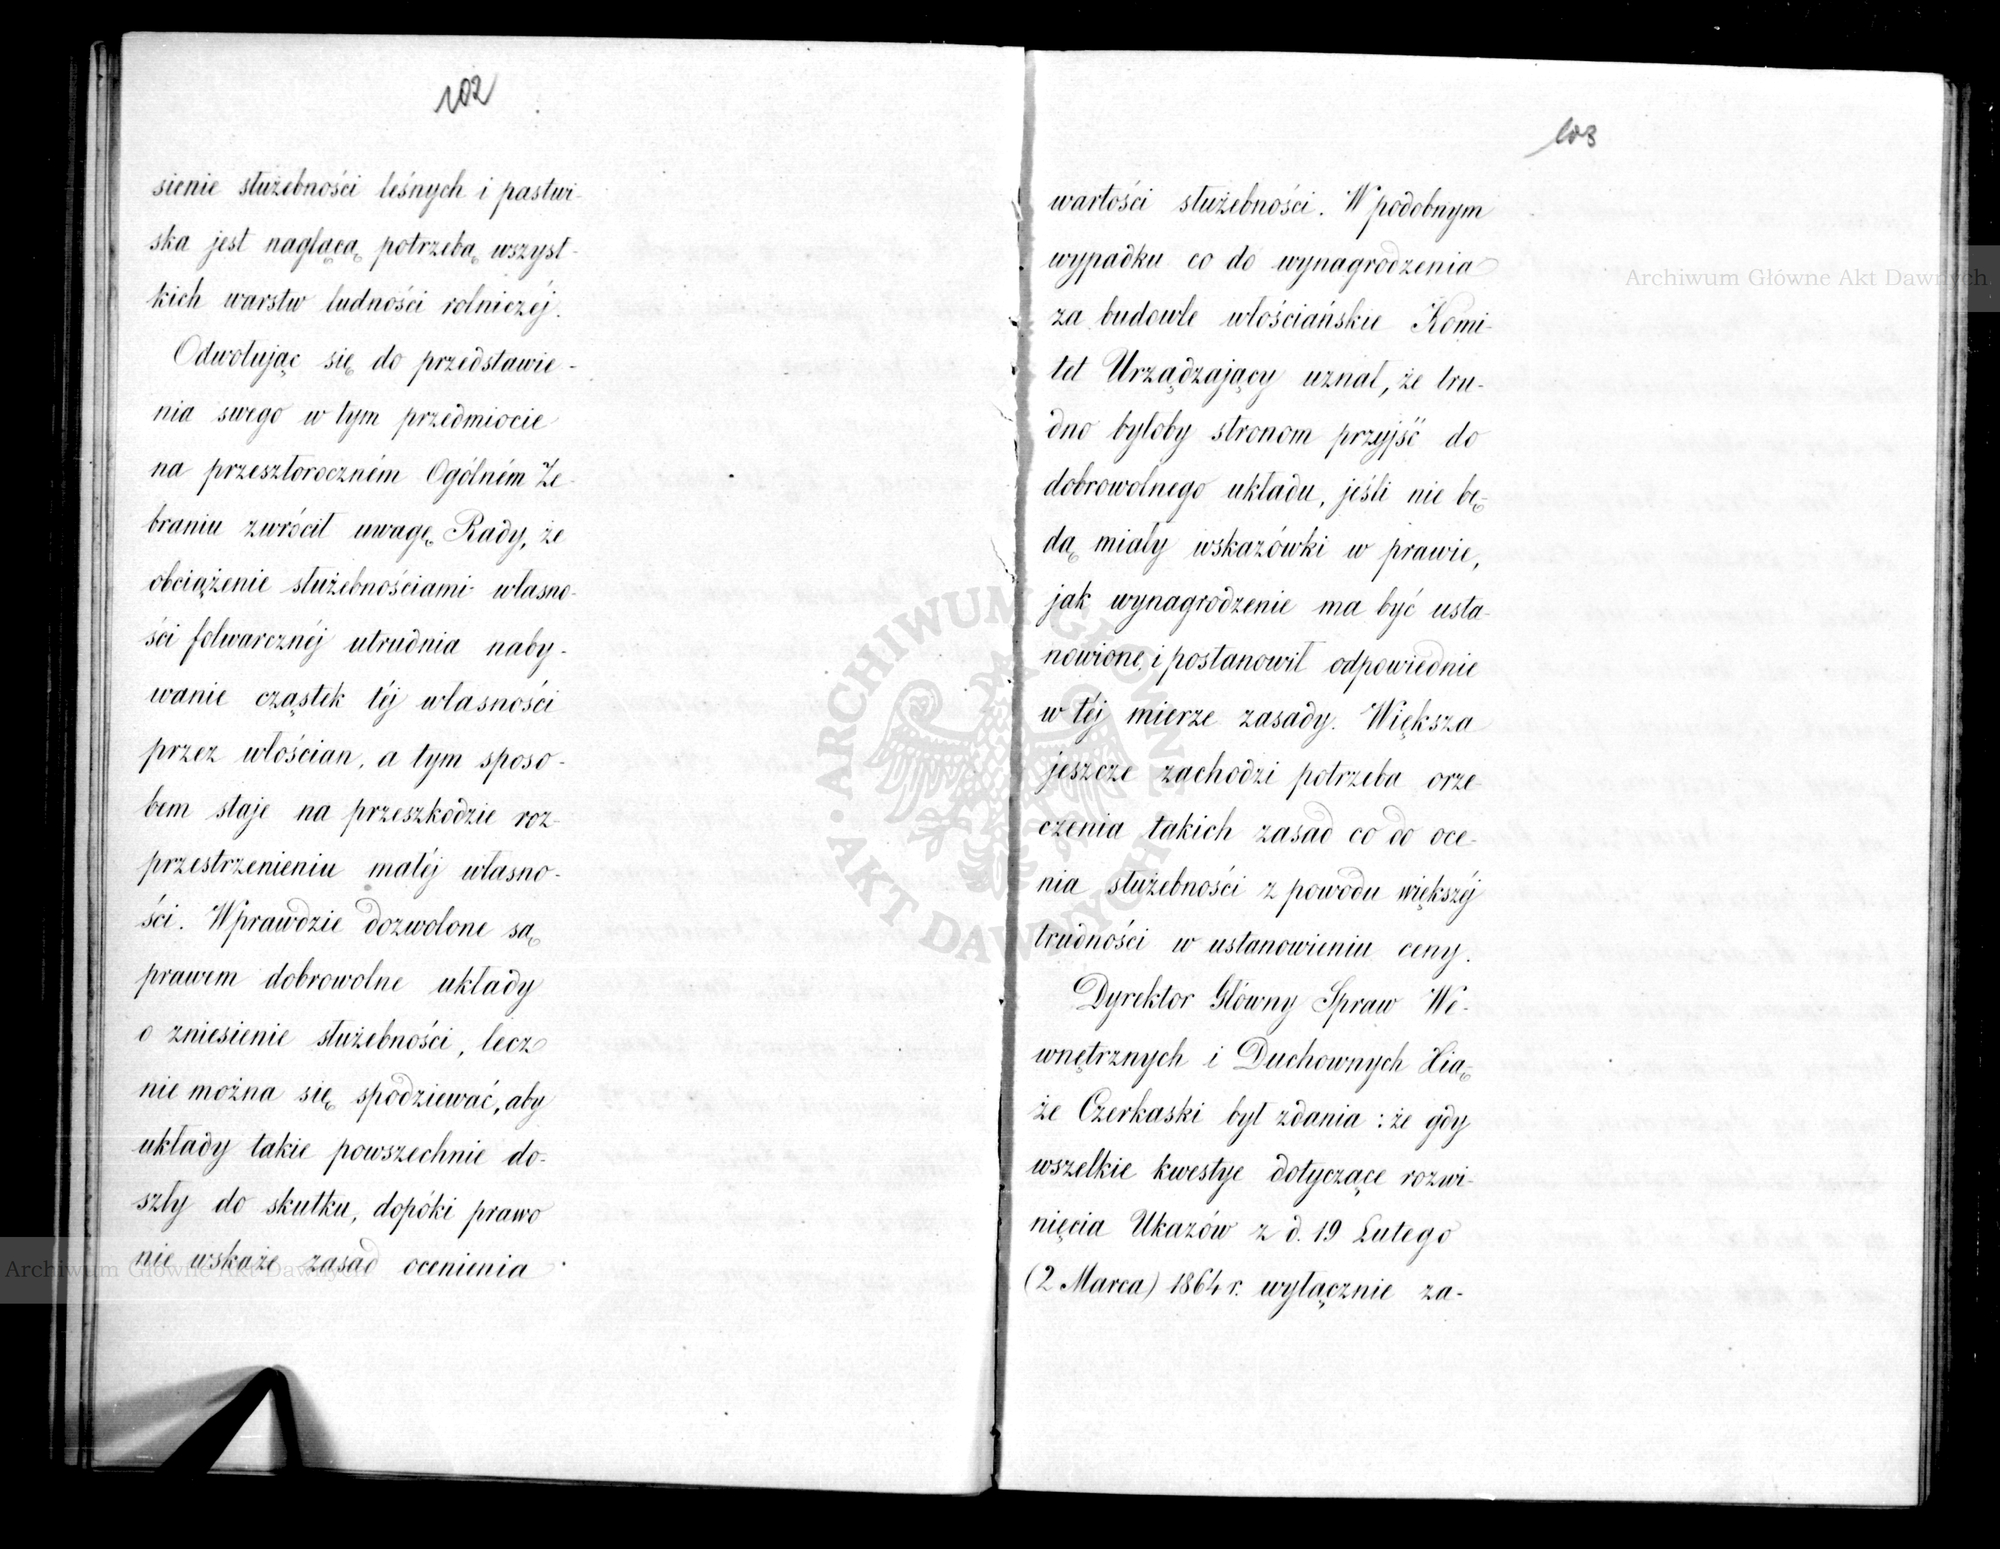 102
sienie służebności leśnych i pastwi-
ska jest naglącą potrzebą wszyst-
kich warstw ludności rolniczéj.
Odwołując się do przedstawie-
nia swego w tym przedmiocie
na przeszłoroczném Ogólném Ze-
braniu zwrócił uwagę Rady, że
obciążenie służebnościami własno-
ści folwarcznéj utrudnia naby-
wanie cząstek téj własności
przez włościan, a tym sposo-
bem staje na przeszkodzie roz-
przestrzenieniu małéj własno-
ści. Wprawdzie dozwolone są
prawem dobrowolne układy
o zniesienie służebności, lecz
nie można się spodziewać, aby
układy takie powszechnie do-
szły do skutku, dopóki prawo
nie wskaże zasad ocenienia
103
wartości służebności. W podobnym
wypadku co do wynagrodzenia
za budowle włościańskie Komi-
tet Urządzający uznał, że tru-
dno byłoby stronom przyjść do
dobrowolnego układu, jeśli nie bę-
dą miały wskazówki w prawie,
jak wynagrodzenie ma być usta-
nowione, i postanowił odpowiednie
w téj mierze zasady. Większa
jeszcze zachodzi potrzeba orze-
czenia takich zasad co do oce-
nia służebności z powodu większéj
trudności w ustanowieniu ceny.
Dyrektor Główny Spraw We-
wnętrznych i Duchownych Xią-
że Czerkaski był zdania: że gdy
wszelkie kwestye dotyczące rozwi-
nięcia Ukazów z d. 19 Lutego
(2 Marca) 1864 r. wyłącznie za-
Archiwum Główne Akt Dawnych
Archiwum Główne Akt Dawnych
ARCHIWUM GŁÓWNE
AKT DAWNYCH